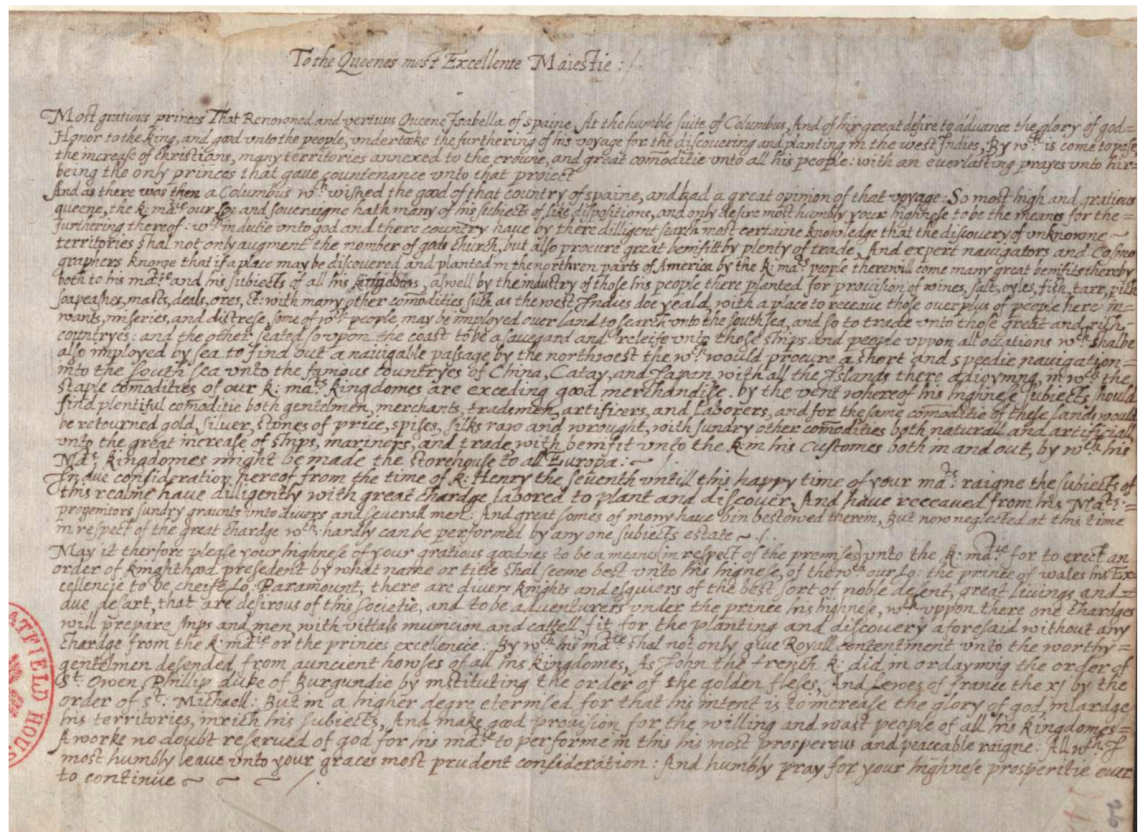 To the Queenes most Excellente Maiestie :/.
Most gratious princes That Renowned and vertius Queene Isabella of spaine, At the humble suite of Columbus, And of hir great desire to advance the glory of god=
Honor to the king, and good unto the people, undertake the furthering of his voyage for the discovering and planting in the west Indies, By wch is come to passe
the increase of christians, many territories annexed to the crowne, and great comoditie unto all his people: with an everlasting prayes unto hir
being the only princes that gave countenance unto that proiect
And as there was then a Columbus wch wished the good of that country of spaine, and had a great opinion of that voyage: So most high and gratious
queene, the k: matie our Lo: and soveraigne hath many of his subiects of like dispositions, and only desire most humbly your highnese to be the means for the=
furthering thereof: wch in dutie unto god and there country have by there dilligent search most certaine knowledge that the discovery of unknowne
territories shal not only augment the nomber of gods church, but also procure great benifitt by plenty of trade, And expert navigators and Cosmo
graphers knowe that if a place may be discovered and planted in the northren parts of America by the k: mats people there will come many great benifits thereby
both to his matie and his subiects of all his kingdoms, aswell by the industry of those his people there planted for provision of wines, salt, oyles, fish, tarr, pich
soapeashes, masts, deals, ores, &c: with many other comodities such as the west Indies doe yeald, with a place to receaue those overplus of people here in=
wants, miseries, and distrese, some of wch people, may be imployed over land to search unto the south sea, and so to trade unto those great and rich
countryes: and the other seated so vpon the coast to be a savegard and releife unto those ships and people uppon all occations wch shalbe
also imployed by sea to find out a navigable passage by the northwest the wch would procure a short and speedie navigation=
into the south sea unto the famous countryes of China, Catay, and Iapan, with all the Islands there adioyning, in wch the
staple comodities of our k: mats kingdomes are exceding good merchandise, by the vent whereof his highnese subiects should
find plentiful comoditie both gentelmen, merchants, tradesmen, artificers, and laborers, and for the same comoditie of these lands would
be retourned gold, silver, stones of price, spises, silks raw and wrought, with sundry other comodities both naturall and artificiall,
unto the great increase of ships, mariners, and trade, with benifit unto the k: in his Customes both in and out, by wch his
Mats kingdomes might be made the storehouse to all Europa: ~
In due consideration hereof from the time of k: Henry the seventh untill this happy time of your mats raigne the subiects of
this realme have diligently with great chardge labored to plant and discover, And have receaved from his Mats=
progenitors sundry graunts unto divers and severall men: And great somes of mony have bin bestowed therein, But now neglected at this time
in respect of the great chardge wch hardly can be performed by any one subiects estate ~ /.
May it therfore please your highnese of your gratious goodnes to be a means (in respect of the premises) unto the k: matie for to erect an
order of knighthood presedent by what name or title shal seeme best unto his highnese, of the wch our Lo: the prince of wales his Ex=
cellencie to be cheife Lo: Paramount, there are divers knights and esquiers of the best sort of noble desent, great livings and=
due desart, that are desirous of this societie, and to be adventurers under the prince his highnese, wch uppon there one chardges
will prepare ships and men with vittals municion and cattell fit for the planting and discovery aforesaid without any
chardge from the k: matie or the princes excellence: By wch his matie shal not only give Royall contentment unto the worthy=
gentelmen desended from auncient howses of all his kingdomes, As John the french k: did in ordayning the order of
St. Owen, Phillip duke of Burgundie by instituting the order of the golden fleses, And Lewes of france the xj by the
order of St. Michaell: But in a higher degre etermised for that his intent is to increase the glory of god, inlardge
his territories, inrich his subiects, And make good provision for the willing and wast people of all his kingdomes=
A worke no doubt reserved of god for his matie to performe in this his most prosperous and peaceable raigne: All wch I
most humbly leave unto your graces most prudent consideration: And humbly pray for your highnese prosperitie ever
to continue ~ ~ ~ /.
ATFIELD HOUS
26